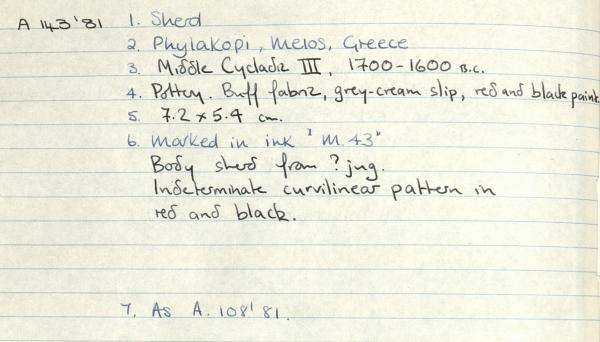 A 143'81 1. Sherd
2. Phylakopi, Melos, Greece
3. Middle Cycladic III, 1700-1600 B.C.
4. Pottery. Buff fabric, grey-cream slip, red and black paint
5. 7.2 x 5.4 cm.
6. Marked in ink 'M.43"
Body sherd from ? jug.
Indeterminate curvilinear pattern in
red and black.
7. As A. 108'81.